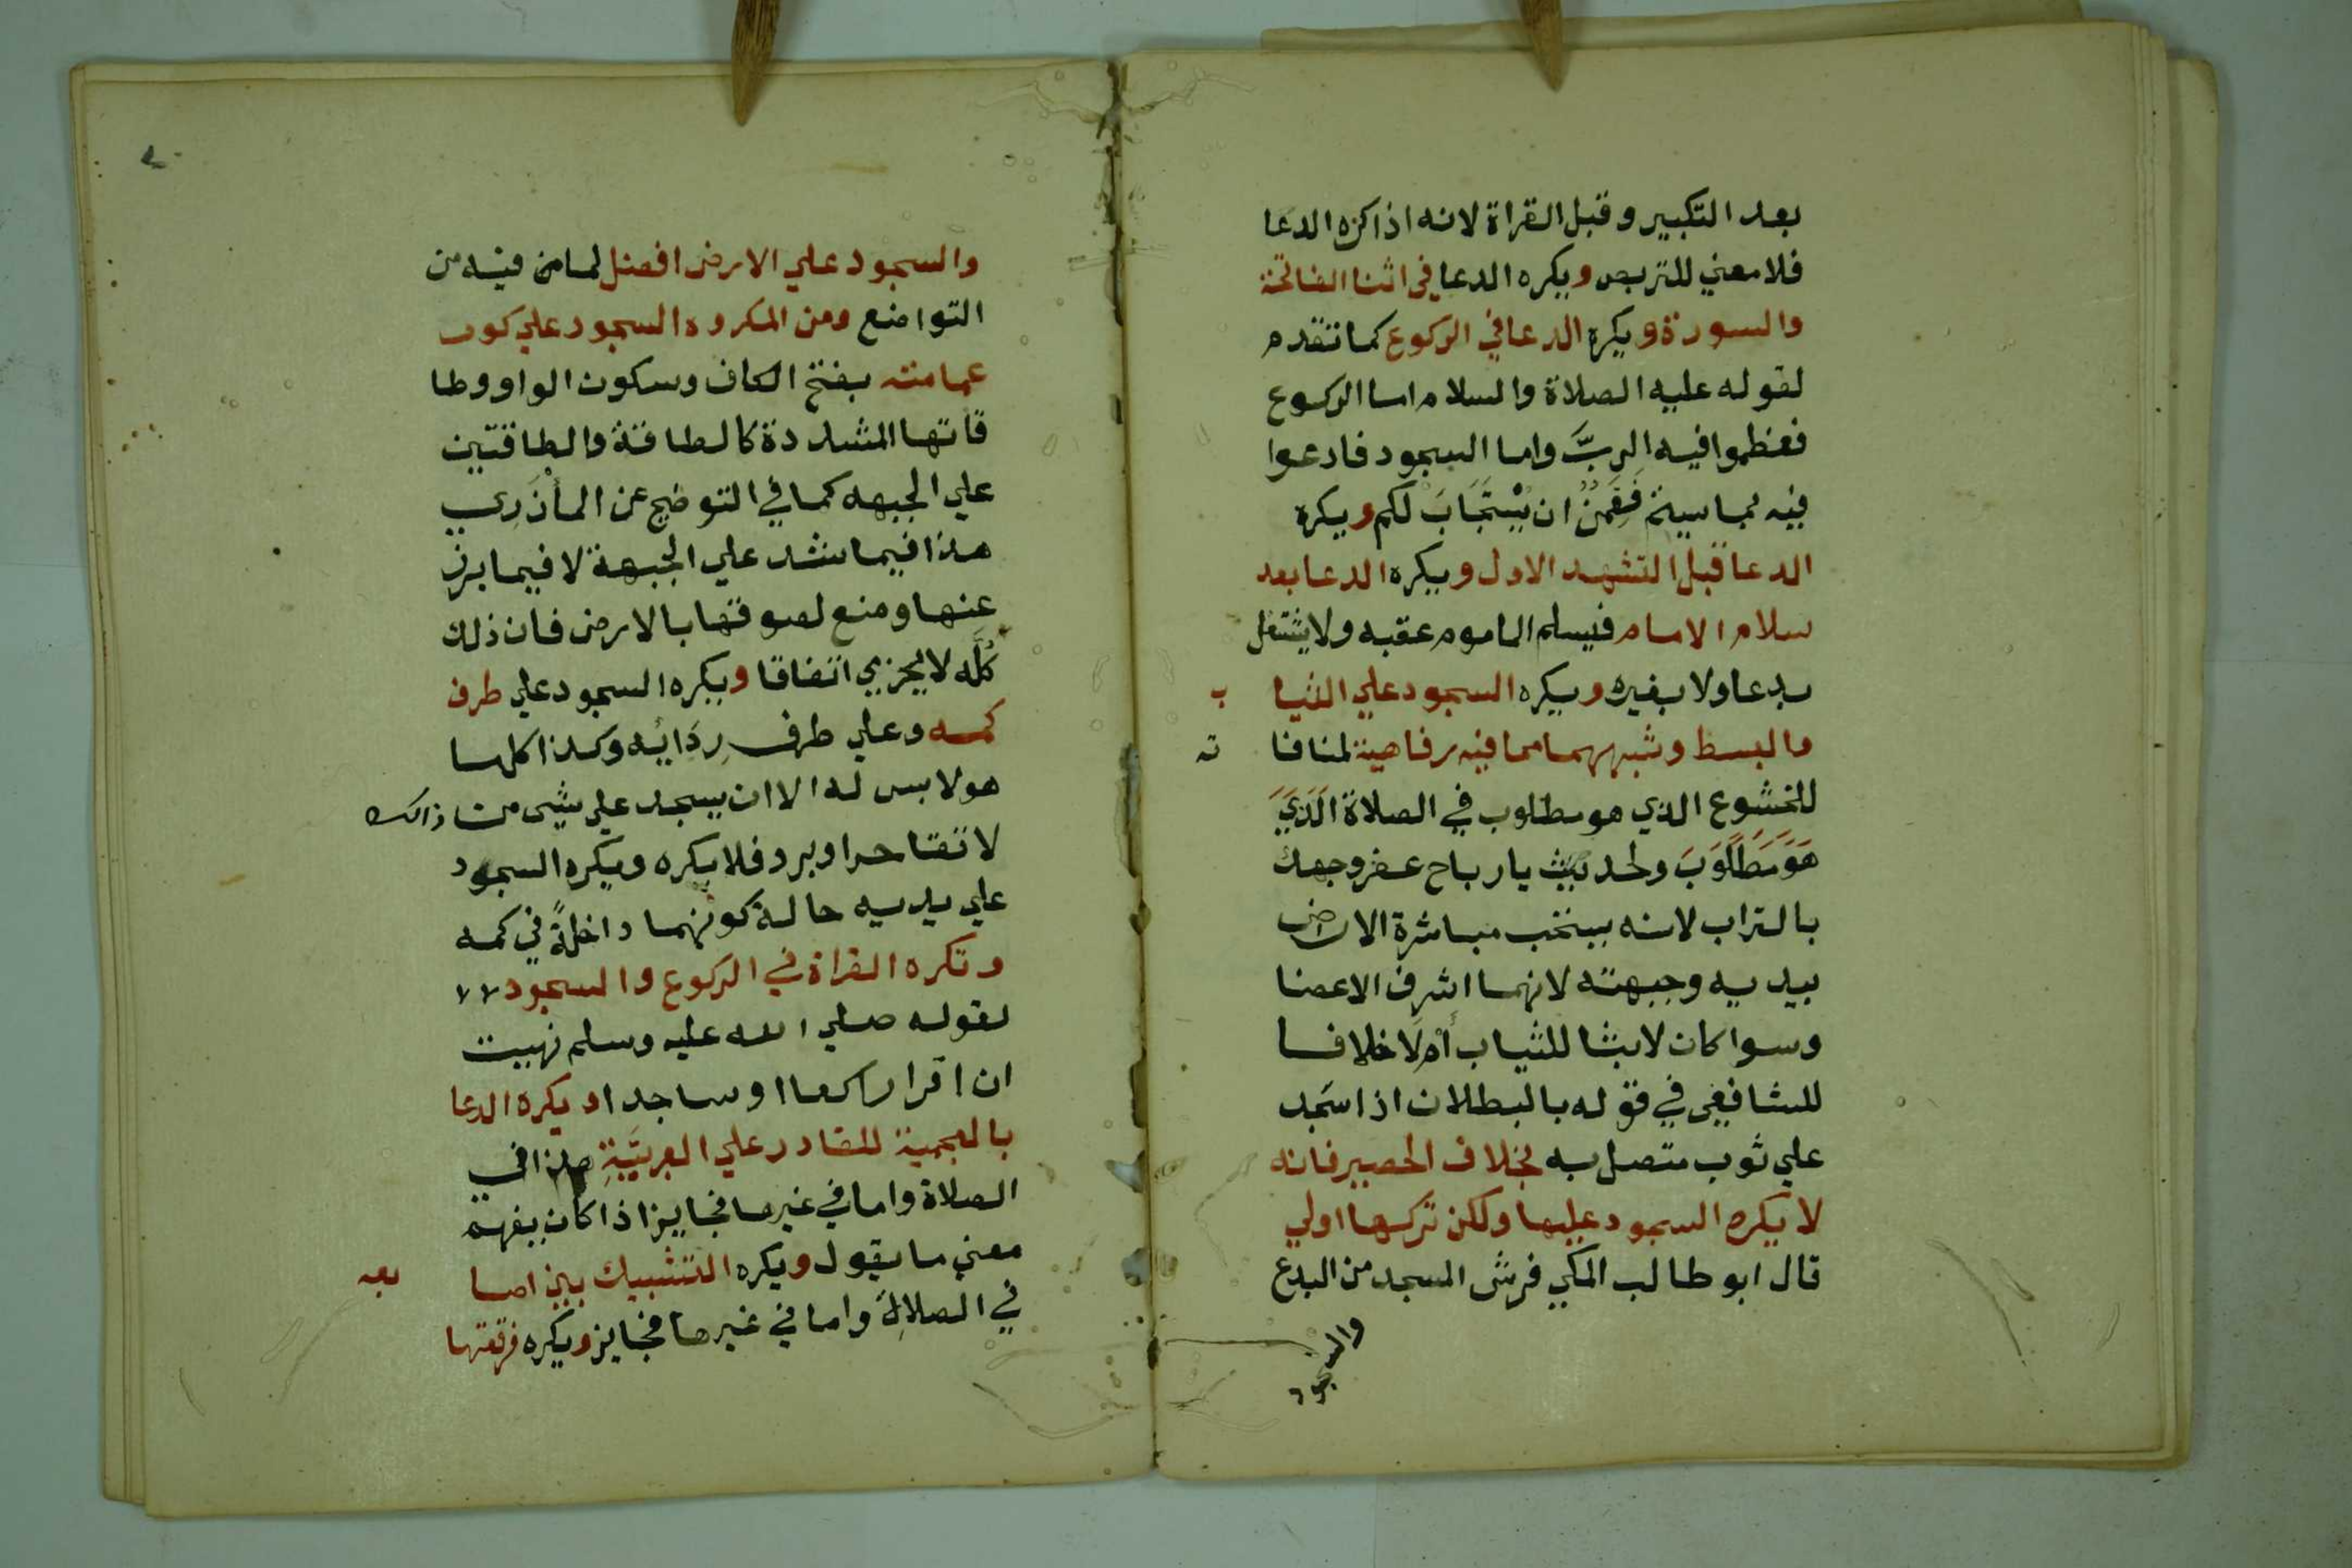 بعد التكبير وقبل القراة لانه اذا كره الدعا
فلا معني للتربص ويكره الدعا في اثنا الفاتحة
والسورة ويكره الدعا في الركوع كما تقدم
لقوله عليه الصلاة والسلام اما الركوع
فعظموا فيه الربَّ واما السجود فادعوا
فيه بما سيتم فَقَمَنٌ ان يُسْتَجَابَ لكم ويكره
الدعا قبل التشهد الاول ويكره الدعا بعد
سلام الامام فيسلم الماموم عقبه ولا يشتغل
بدعا ولا بغيره ويكره السجود علي الثيا ب
والبسط وشبههما مما فيه رفاهية لمنافا ته
للخشوع الذي هو مطلوب في الصلاة الَذَيَ
هَوَ مَطَلَوَبَ ولحديث يا رباح عفر وجهك
بالتراب لانه يستحب مباشرة الارض
بيديه وجبهته لانهما اشرف الاعضا
وسوا كان لابثا للثياب أَمْ لَا خلافا
للشافعي في قوله بالبطلان اذا سَجد
علي ثوب متصل به بخلاف الحصير فانه
لا يكره السجود عليها ولكن تركها اولي
قال ابو طالب المكي فرش المسجد من البدع
والسجود
والسجود علي الارض افضل لما من فيه من
التواضع ومن المكروه السجود علي كور
عمامته بفتح الكاف وسكون الواو وطا
قاتها المشددة كالطاقة والطاقتين
علي الجبهه كما في التوضيح عن المأزَرِي
هذا فيما شد علي الجبهة لا فيما برز
عنها ومنع لصوقها بالارض فان ذلك
كُلَّه لا يجزي اتفاقا ويكره السجود علي طرف
كمه وعلي طرف رِدَائِه وكذا كلما
هو لابس له الا ان يسجد علي شيى من ذالك
لاتقا حر او برد فلا يكره ويكره السجود
علي يديه حالة كونهما داخلةً في كمه
وتكره القراة في الركوع والسجود
لقوله صلي الله عليه وسلم نهيت
ان اقرا راكعا او ساجدا ويكره الدعا
بالعجمية للقادر علي العربيَّةِ هذا في
الصلاة واما في غيرها فجايز اذا كان يفهم
معني ما يقول ويكره التشبيك بين اصا بعه
في الصلاة واما في غيرها فجايز ويكره فرقعتها